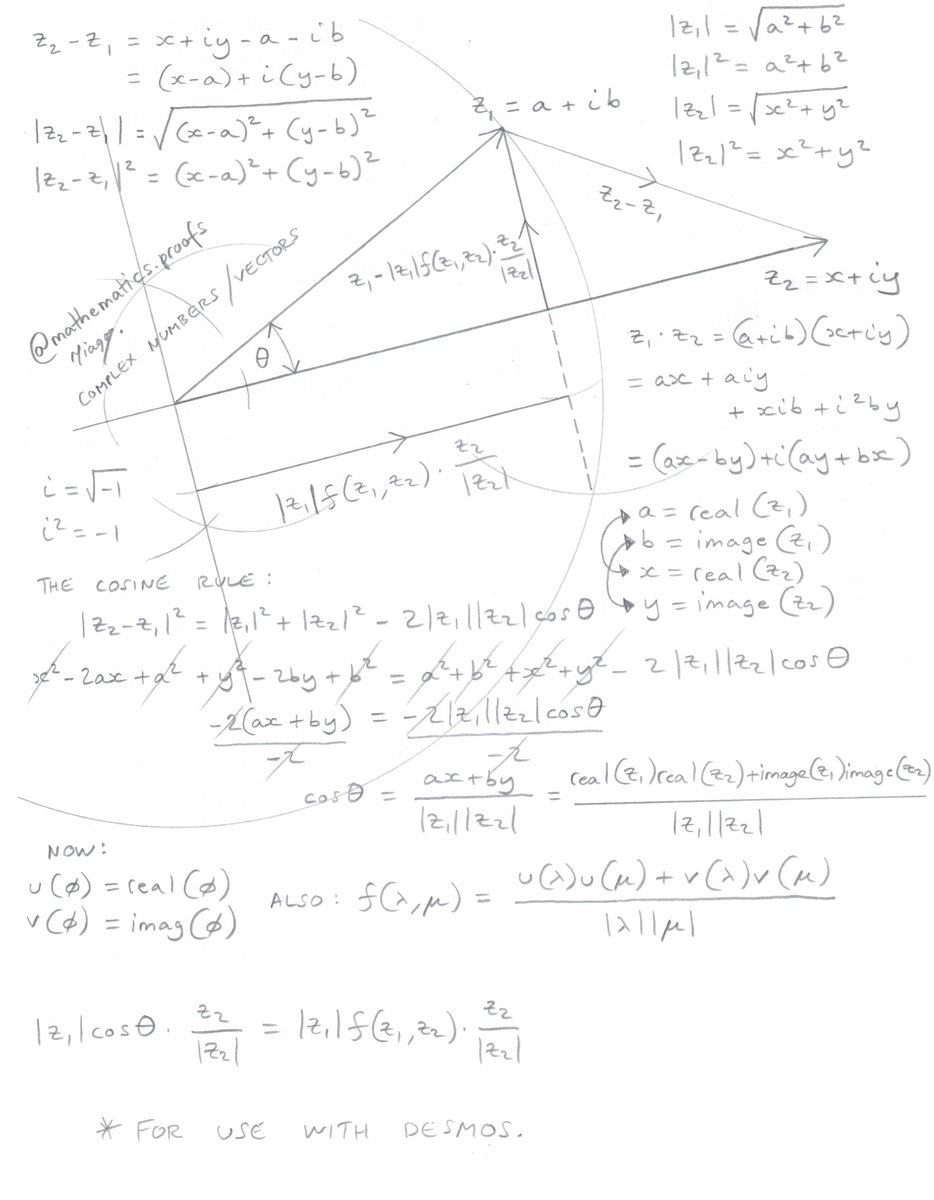 z₂ - z₁ = x + iy - a - ib
= (x-a) + i(y-b)
|z₂-z₁| = √((x-a)² + (y-b)²)
|z₂-z₁|² = (x-a)² + (y-b)²
|z₁| = √(a² + b²)
|z₁|² = a² + b²
|z₂| = √(x² + y²)
|z₂|² = x² + y²
z₁ = a + ib
z₂ - z₁
z₁ - |z₁| f(z₁,z₂) · z₂/|z₂|
z₂ = x + iy
@mathematics.proofs
COMPLEX NUMBERS / VECTORS
θ
|z₁| f(z₁,z₂) · z₂/|z₂|
z₁ · z₂ = (a+ib)(x+iy)
= ax + aiy
+ xib + i²by
= (ax-by) + i(ay+bx)
a = real (z₁)
b = image (z₁)
x = real (z₂)
y = image (z₂)
i = √-1
i² = -1
THE COSINE RULE:
|z₂-z₁|² = |z₁|² + |z₂|² - 2|z₁||z₂|cosθ
x² - 2ax + a² + y² - 2by + b² = a² + b² + x² + y² - 2|z₁||z₂|cosθ
-2(ax+by)/-2 = -2|z₁||z₂|cosθ/-2
cosθ = (ax+by)/(|z₁||z₂|) = (real(z₁)real(z₂)+image(z₁)image(z₂))/(|z₁||z₂|)
NOW:
u(φ) = real(φ)
v(φ) = imag(φ)
ALSO: f(λ,μ) = (u(λ)u(μ) + v(λ)v(μ))/(|λ||μ|)
|z₁|cosθ · z₂/|z₂| = |z₁| f(z₁,z₂) · z₂/|z₂|
* FOR USE WITH DESMOS.